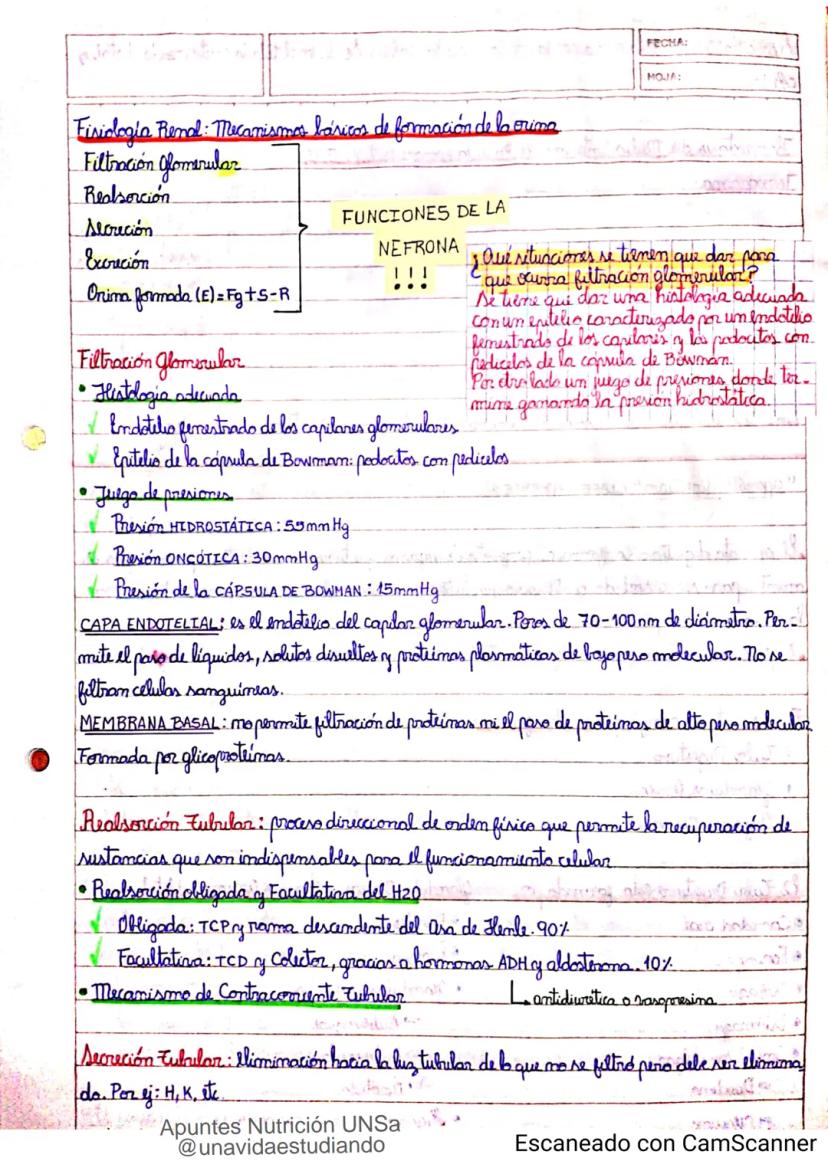 FECHA:
HOJA:
Fisiología Renal: Mecanismos básicos de formación de la orina
Filtración Glomerular
Reabsorción
Secreción
Excreción
Orina formada (E)=Fg+S-R
FUNCIONES DE LA
NEFRONA
!!!
¿Qué situaciones se tienen que dar para
que ocurra filtración glomerular?
Se tiene que dar una histología adecuada
con un epitelio caracterizado por un endotelio
fenestrado de los capilares y los podocitos con
pedicelos de la cápsula de Bowman.
Por otro lado un juego de presiones donde ter-
mine ganando la presión hidrostática.
Filtración Glomerular
• Histología adecuada
✓ Endotelio fenestrado de los capilares glomerulares
✓ Epitelio de la cápsula de Bowman: podocitos con pedicelos
• Juego de presiones
✓ Presión HIDROSTÁTICA: 55mmHg
✓ Presión ONCÓTICA: 30mmHg
✓ Presión de la CÁPSULA DE BOWMAN: 15mmHg
CAPA ENDOTELIAL: es el endotelio del capilar glomerular. Poros de 70-100nm de diámetro. Per-
mite el paso de líquidos, solutos disueltos y proteínas plasmáticas de bajo peso molecular. No se
filtran células sanguíneas.
MEMBRANA BASAL: no permite filtración de proteínas ni el paso de proteínas de alto peso molecular
Formada por glicoproteínas.
Reabsorción Tubular: proceso direccional de orden físico que permite la recuperación de
sustancias que son indispensables para el funcionamiento celular
• Reabsorción obligada y Facultativa del H2O
✓ Obligada: TCP y rama descendente del Asa de Henle. 90%
✓ Facultativa: TCD y Colector, gracias a hormonas ADH y aldosterona. 10%
• Mecanismo de Contracorriente Tubular
antidiurética o vasopresina
Secreción Tubular: eliminación hacia la luz tubular de lo que no se filtró pero debe ser elimina
do. Por ej: H, K, etc
Apuntes Nutrición UNSa
@unavidaestudiando
Escaneado con CamScanner